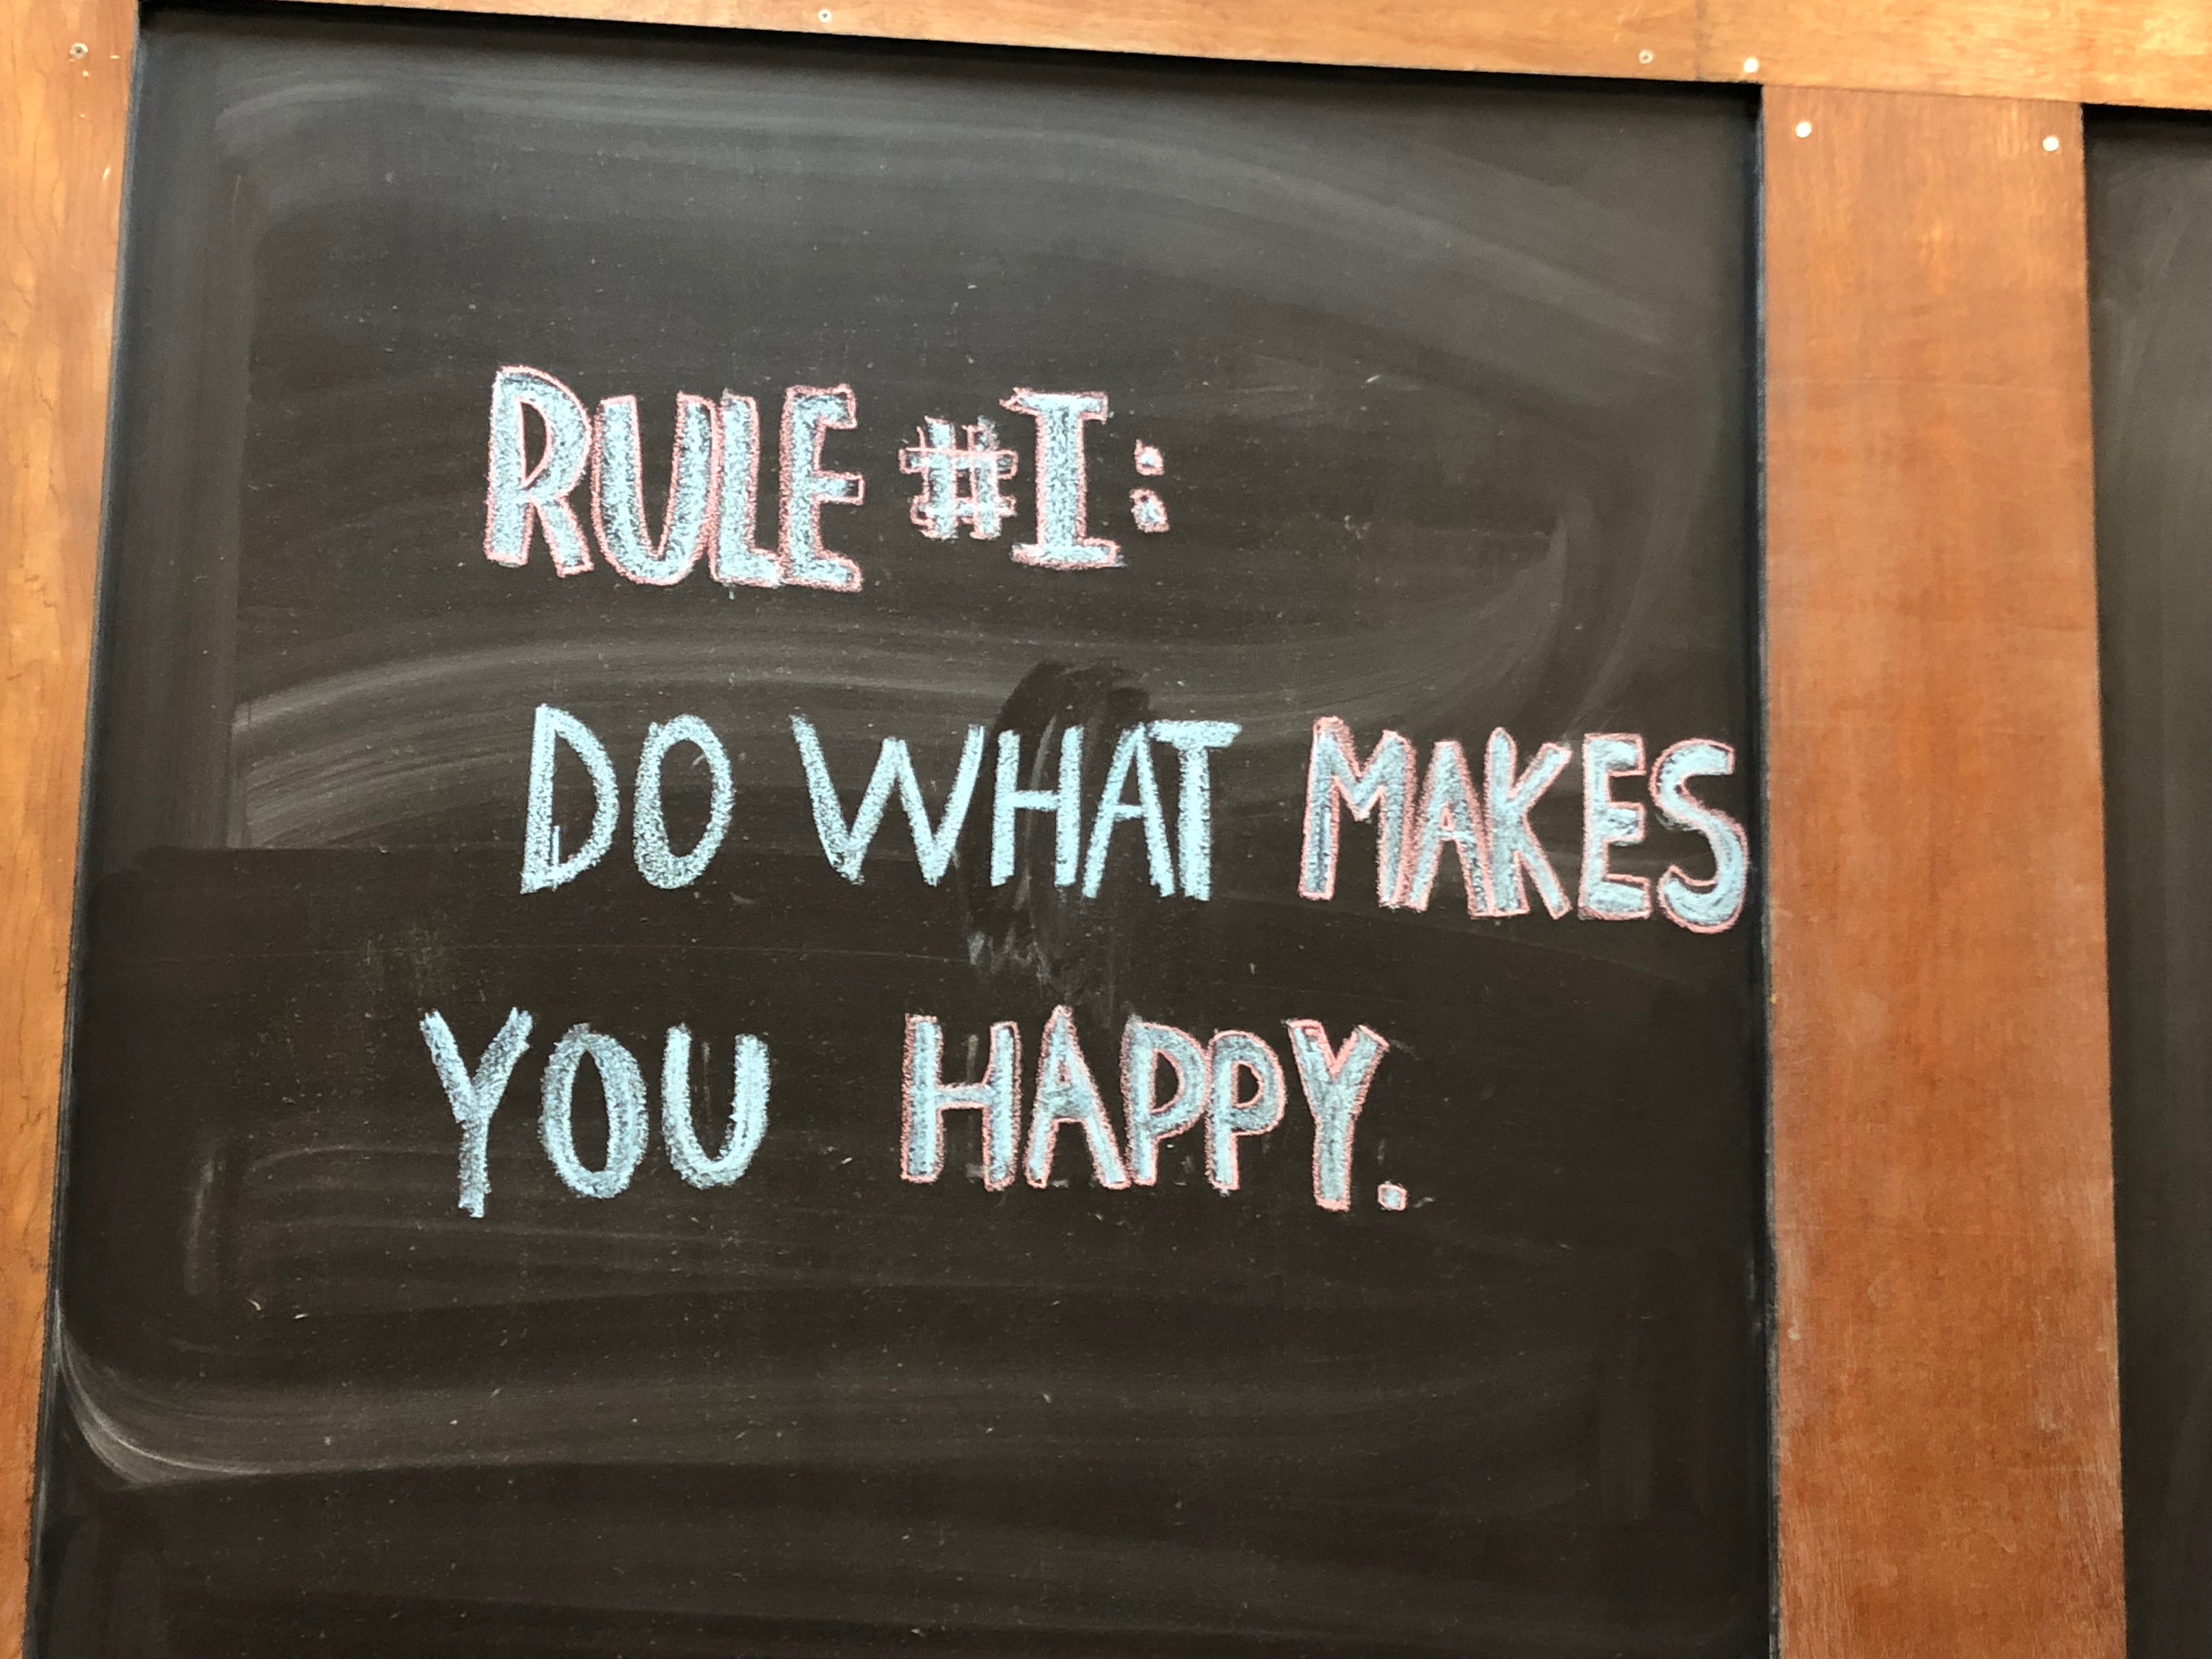 RULE #1:
DO WHAT MAKES
YOU HAPPY.